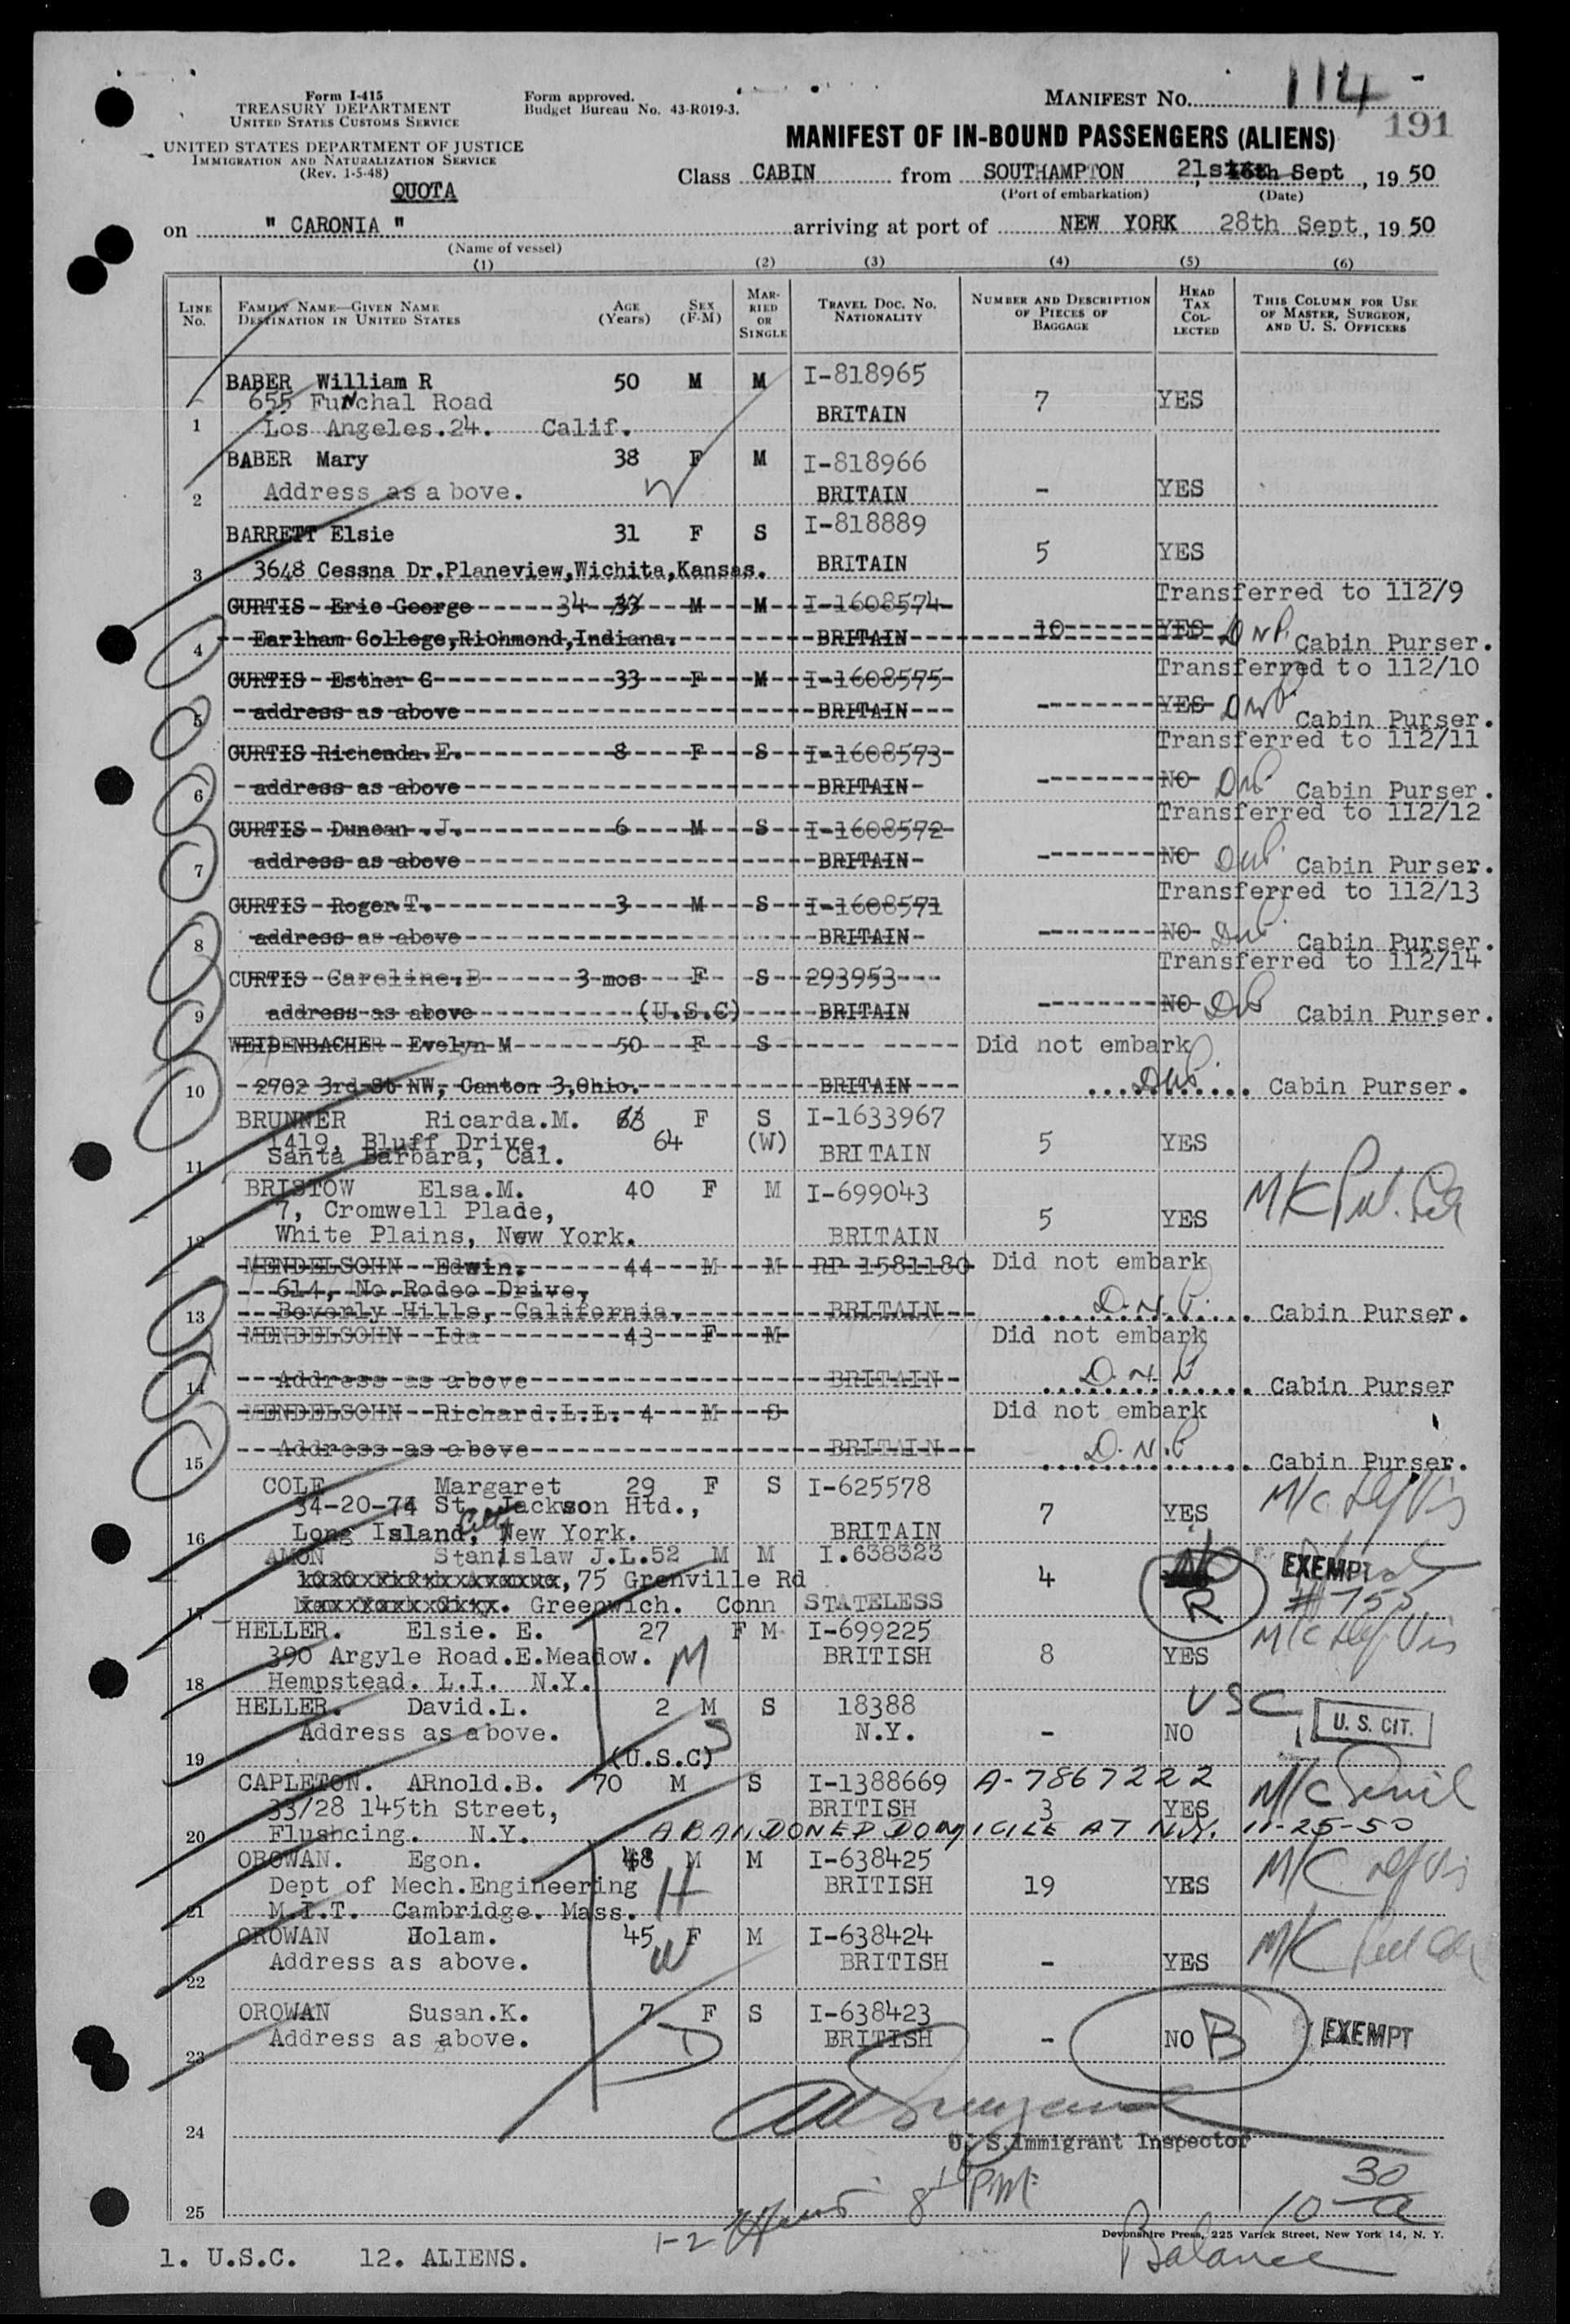 Form I-415
TREASURY DEPARTMENT
UNITED STATES CUSTOMS SERVICE
UNITED STATES DEPARTMENT OF JUSTICE
IMMIGRATION AND NATURALIZATION SERVICE
(Rev. 1-5-48)
QUOTA
Form approved.
Budget Bureau No. 43-R019-3.
MANIFEST No. 114
191
MANIFEST OF IN-BOUND PASSENGERS (ALIENS)
Class CABIN from SOUTHAMPTON 21st 16th Sept, 1950
(Port of embarkation) (Date)
on " CARONIA " arriving at port of NEW YORK 28th Sept, 1950
(Name of vessel)
(1) (2) (3) (4) (5) (6)
LINE No. FAMILY NAME—GIVEN NAME DESTINATION IN UNITED STATES AGE (Years) SEX (F-M) MARRIED OR SINGLE TRAVEL DOC. NO. NATIONALITY NUMBER AND DESCRIPTION OF PIECES OF BAGGAGE HEAD TAX COLLECTED THIS COLUMN FOR USE OF MASTER, SURGEON, AND U. S. OFFICERS
BABER William R 50 M M I-818965
655 Funchal Road BRITAIN 7 YES
1 Los Angeles.24. Calif.
BABER Mary 38 F M I-818966
2 Address as above. W BRITAIN - YES
BARRETT Elsie 31 F S I-818889
3 3648 Cessna Dr.Planeview,Wichita,Kansas. BRITAIN 5 YES
CURTIS Eric George 34 33 M M I-1608574 Transferred to 112/9
4 Earlham College,Richmond,Indiana. BRITAIN 10 YES DNP. Cabin Purser.
CURTIS Esther G 33 F M I-1608575 Transferred to 112/10
5 address as above BRITAIN - YES DNP. Cabin Purser.
CURTIS Richenda.E. 8 F S I-1608573 Transferred to 112/11
6 address as above BRITAIN - NO DNP. Cabin Purser.
CURTIS Duncan .J. 6 M S I-1608572 Transferred to 112/12
7 address as above BRITAIN - NO DNP. Cabin Purser.
CURTIS Roger.T. 3 M S I-1608571 Transferred to 112/13
8 address as above BRITAIN - NO DNP. Cabin Purser.
CURTIS Caroline.B 3 mos F S 293953 Transferred to 112/14
9 address as above (U.S.C) BRITAIN - NO DNP Cabin Purser.
WEIDENBACHER Evelyn M 50 F S Did not embark
10 2702 3rd St NW, Canton 3,Ohio. BRITAIN DNP. Cabin Purser.
BRUNNER Ricarda.M. 63 F S I-1633967
1419, Bluff Drive, 64 (W) BRITAIN 5 YES
11 Santa Barbara, Cal.
BRISTOW Elsa.M. 40 F M I-699043
7, Cromwell Plade, 5 YES M/C
12 White Plains, New York. BRITAIN
MENDELSOHN Edwin. 44 M M RP 1581180 Did not embark
614, No.Rodeo Drive,
13 Beverly Hills, California. BRITAIN D.N.P. Cabin Purser.
MENDELSOHN Ida 43 F M Did not embark
14 Address as above BRITAIN D.N.P Cabin Purser
MENDELSOHN Richard.L.L. 4 M S Did not embark
15 Address as above BRITAIN D.N.P Cabin Purser.
COLE Margaret 29 F S I-625578
34-20-74 St. Jackson Htd., 7 YES M/c Def Vis
16 Long Island, City New York. BRITAIN
AMON Stanislaw J.L.52 M M I.638323 NO EXEMPT
75 Grenville Rd 4 R
17 Greenwich. Conn STATELESS
HELLER. Elsie. E. 27 F M I-699225 M/C Def Vis
390 Argyle Road.E.Meadow. M BRITISH 8 YES
18 Hempstead. L.I. N.Y.
HELLER. David.L. 2 M S 18388 USC
Address as above. S N.Y. - NO U. S. CIT.
19 (U.S.C)
CAPLETON. ARnold.B. 70 M S I-1388669 A-7867222
33/28 145th Street, BRITISH 3 YES M/C
20 Flushcing. N.Y. ABANDONED DOMICILE AT N.Y. 11-25-50
OROWAN. Egon. 48 M M I-638425
Dept of Mech.Engineering H BRITISH 19 YES M/C Def Vis
21 M.I.T. Cambridge. Mass.
OROWAN Jolam. 45 F M I-638424
Address as above. W BRITISH - YES M/C
22
OROWAN Susan.K. 7 F S I-638423
Address as above. D BRITISH - NO B EXEMPT
23
24
U. S. Immigrant Inspector
25
8 10 PM.
10 30 a
Devonshire Press, 225 Varick Street, New York 14, N. Y.
1. U.S.C. 12. ALIENS.
Balance